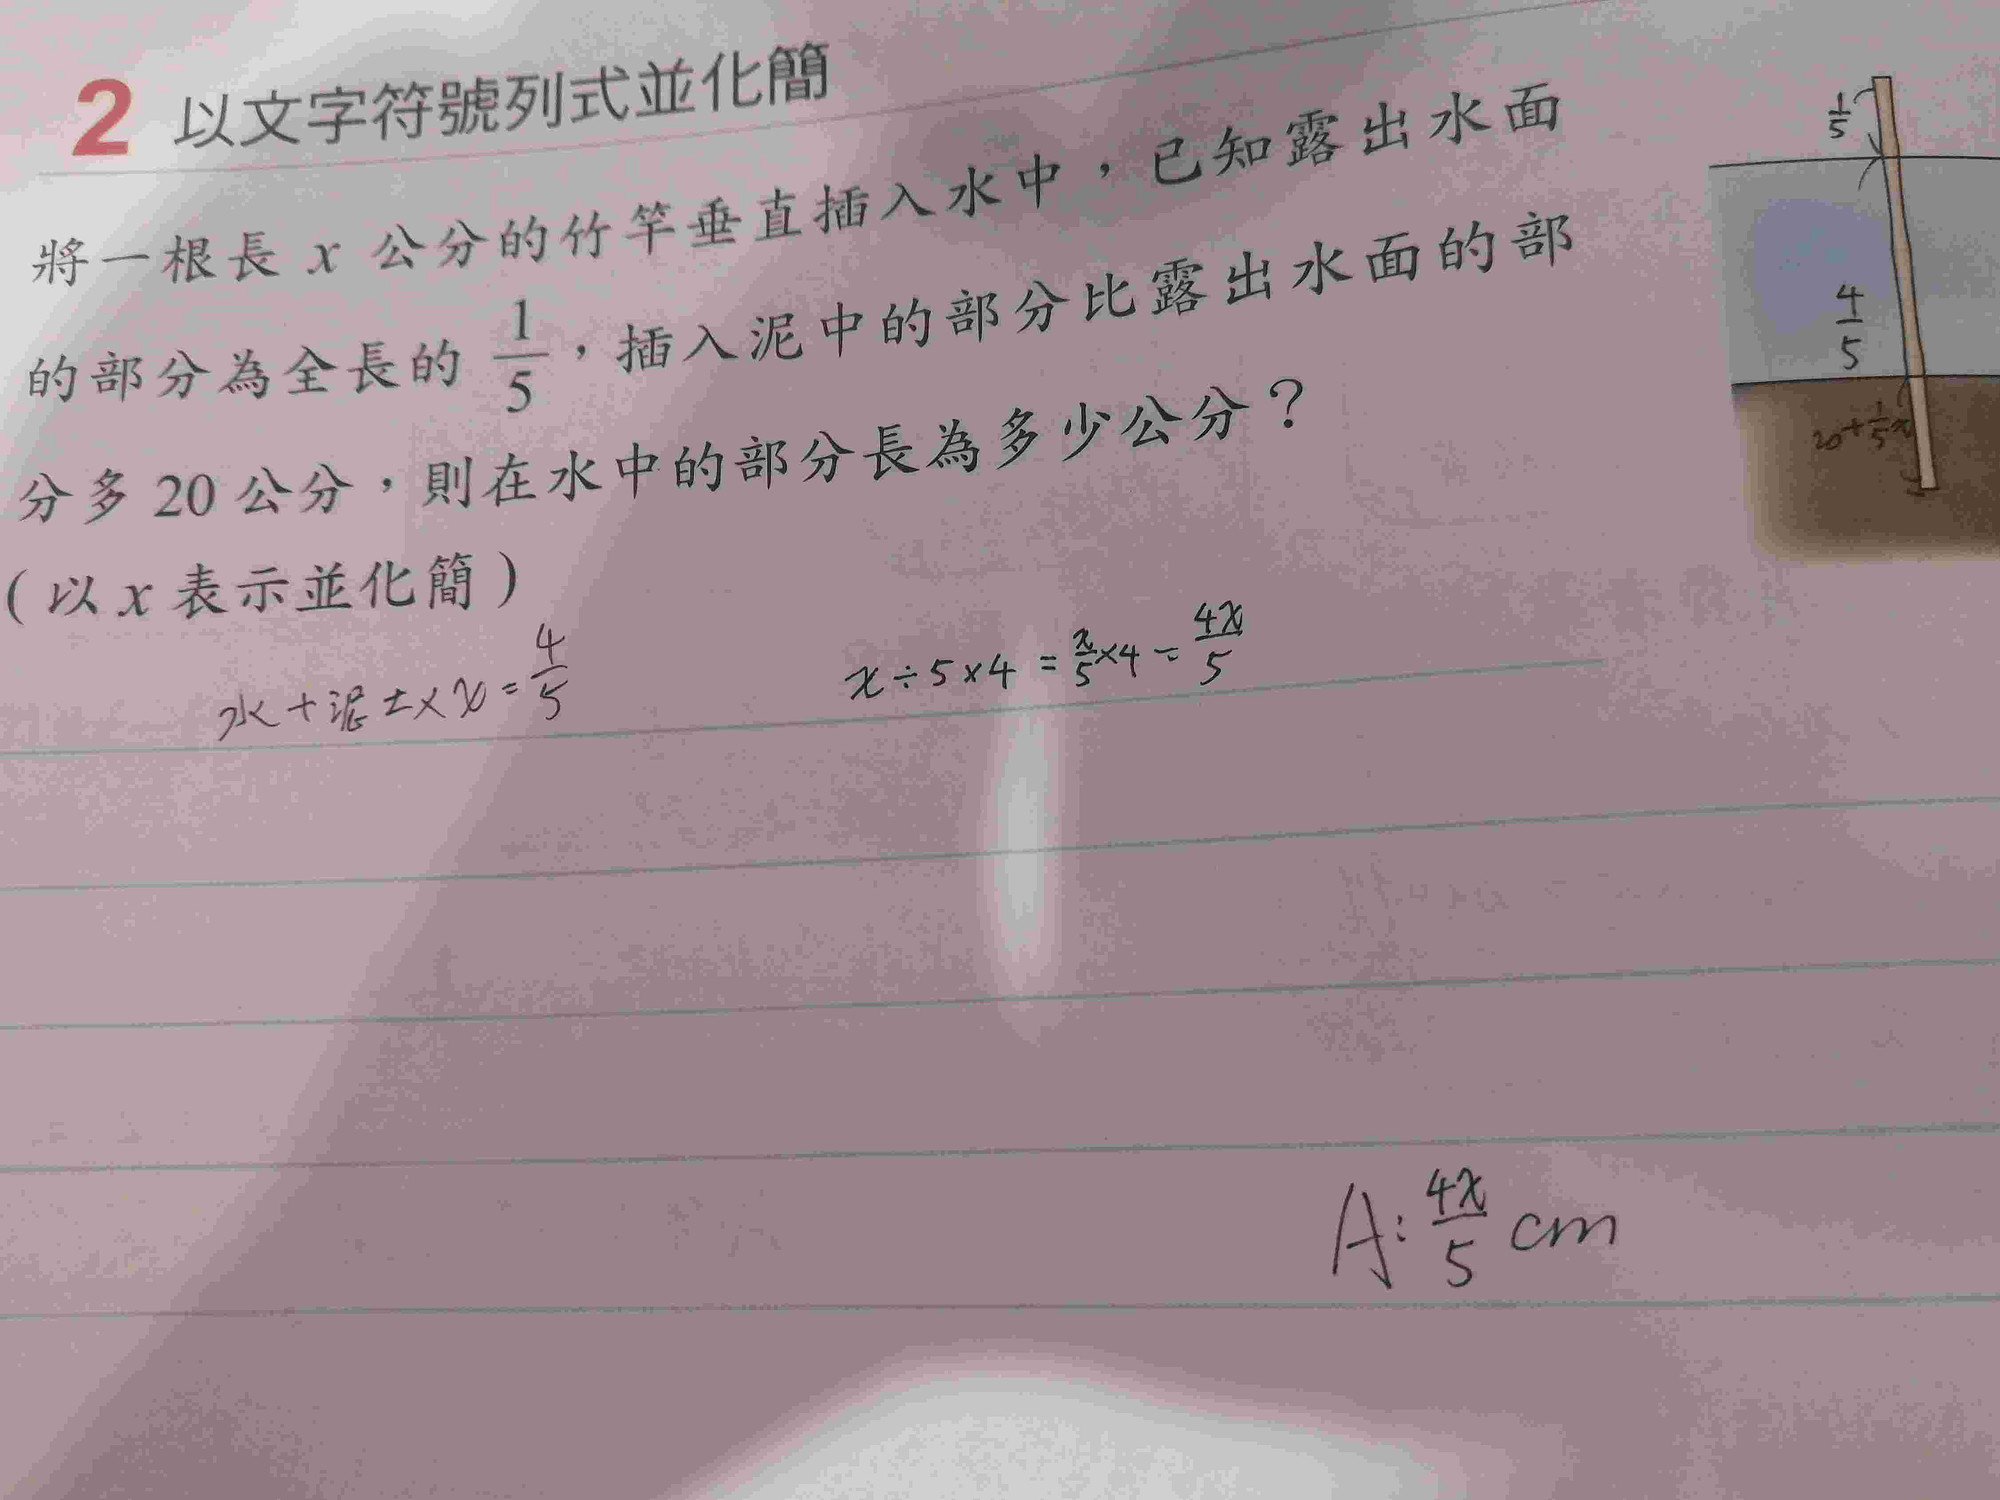 2 以文字符號列式並化簡
將一根長 x 公分的竹竿垂直插入水中，已知露出水面
的部分為全長的 1/5，插入泥中的部分比露出水面的部
分多 20 公分，則在水中的部分長為多少公分？
（以 x 表示並化簡）
1/5
4/5
20+1/5x
水+泥土×x=4/5
x÷5×4=x/5×4=4x/5
A:4x/5 cm